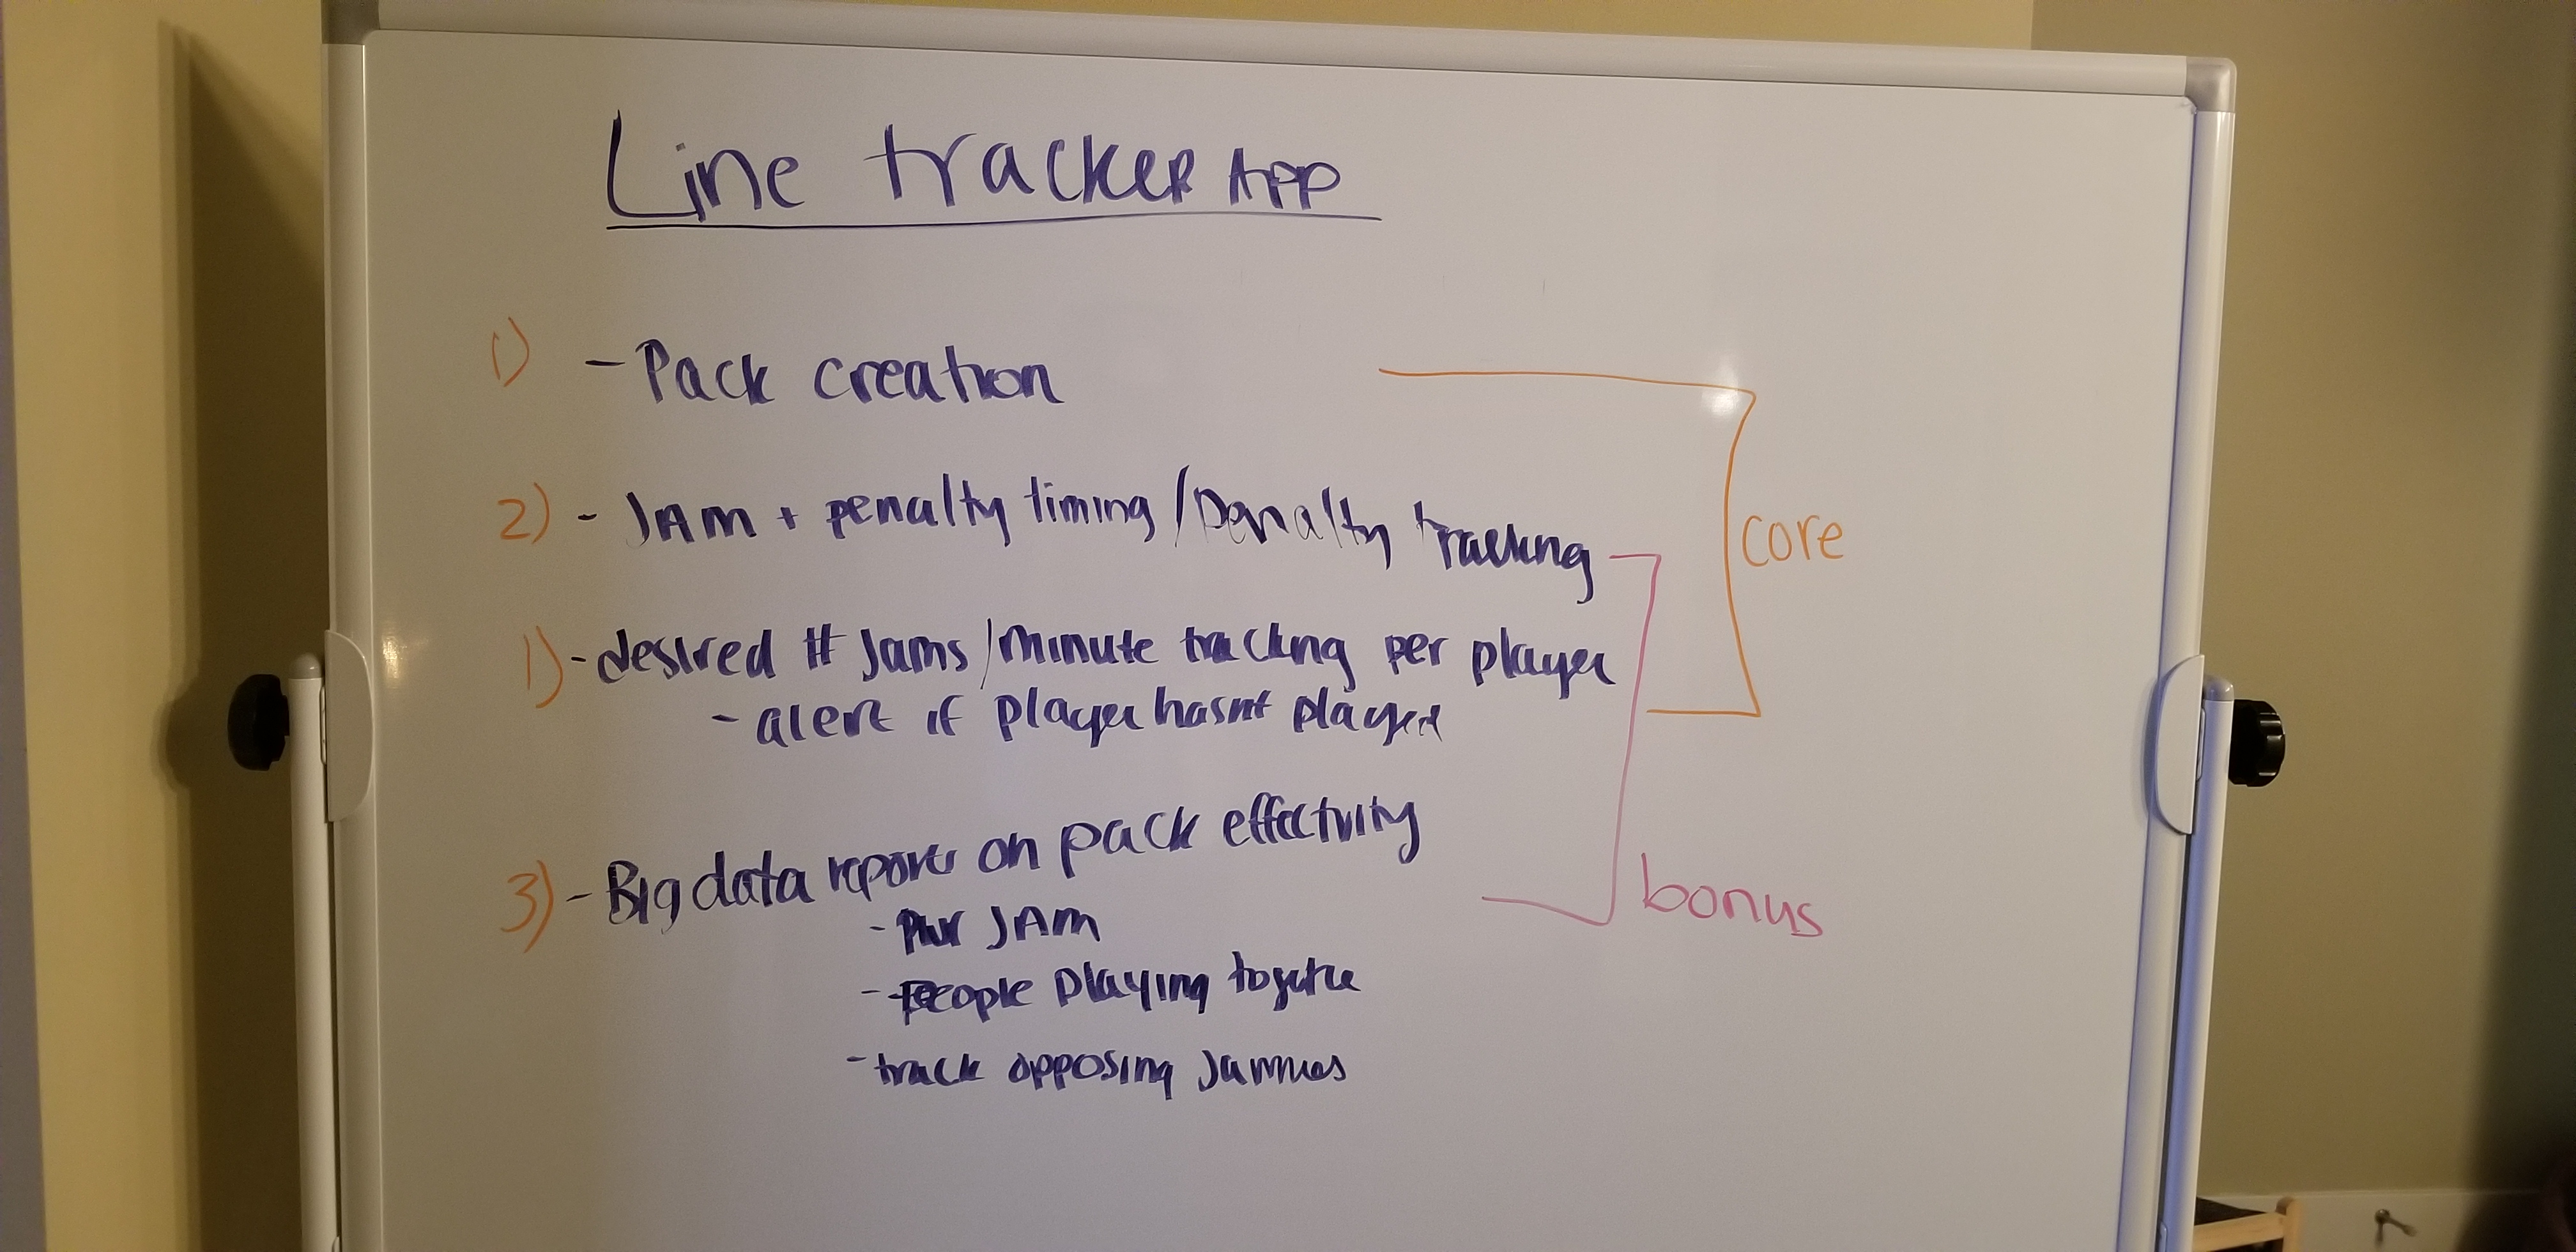 Line tracker App
1) - Pack creation
2) - JAM + penalty timing / Penalty tracking
core
1) - desired # Jams / minute tracking per player
- alert if player hasnt played
3) - Big data reports on pack effectivity
bonus
- Per JAM
- People playing together
- track opposing Jammers